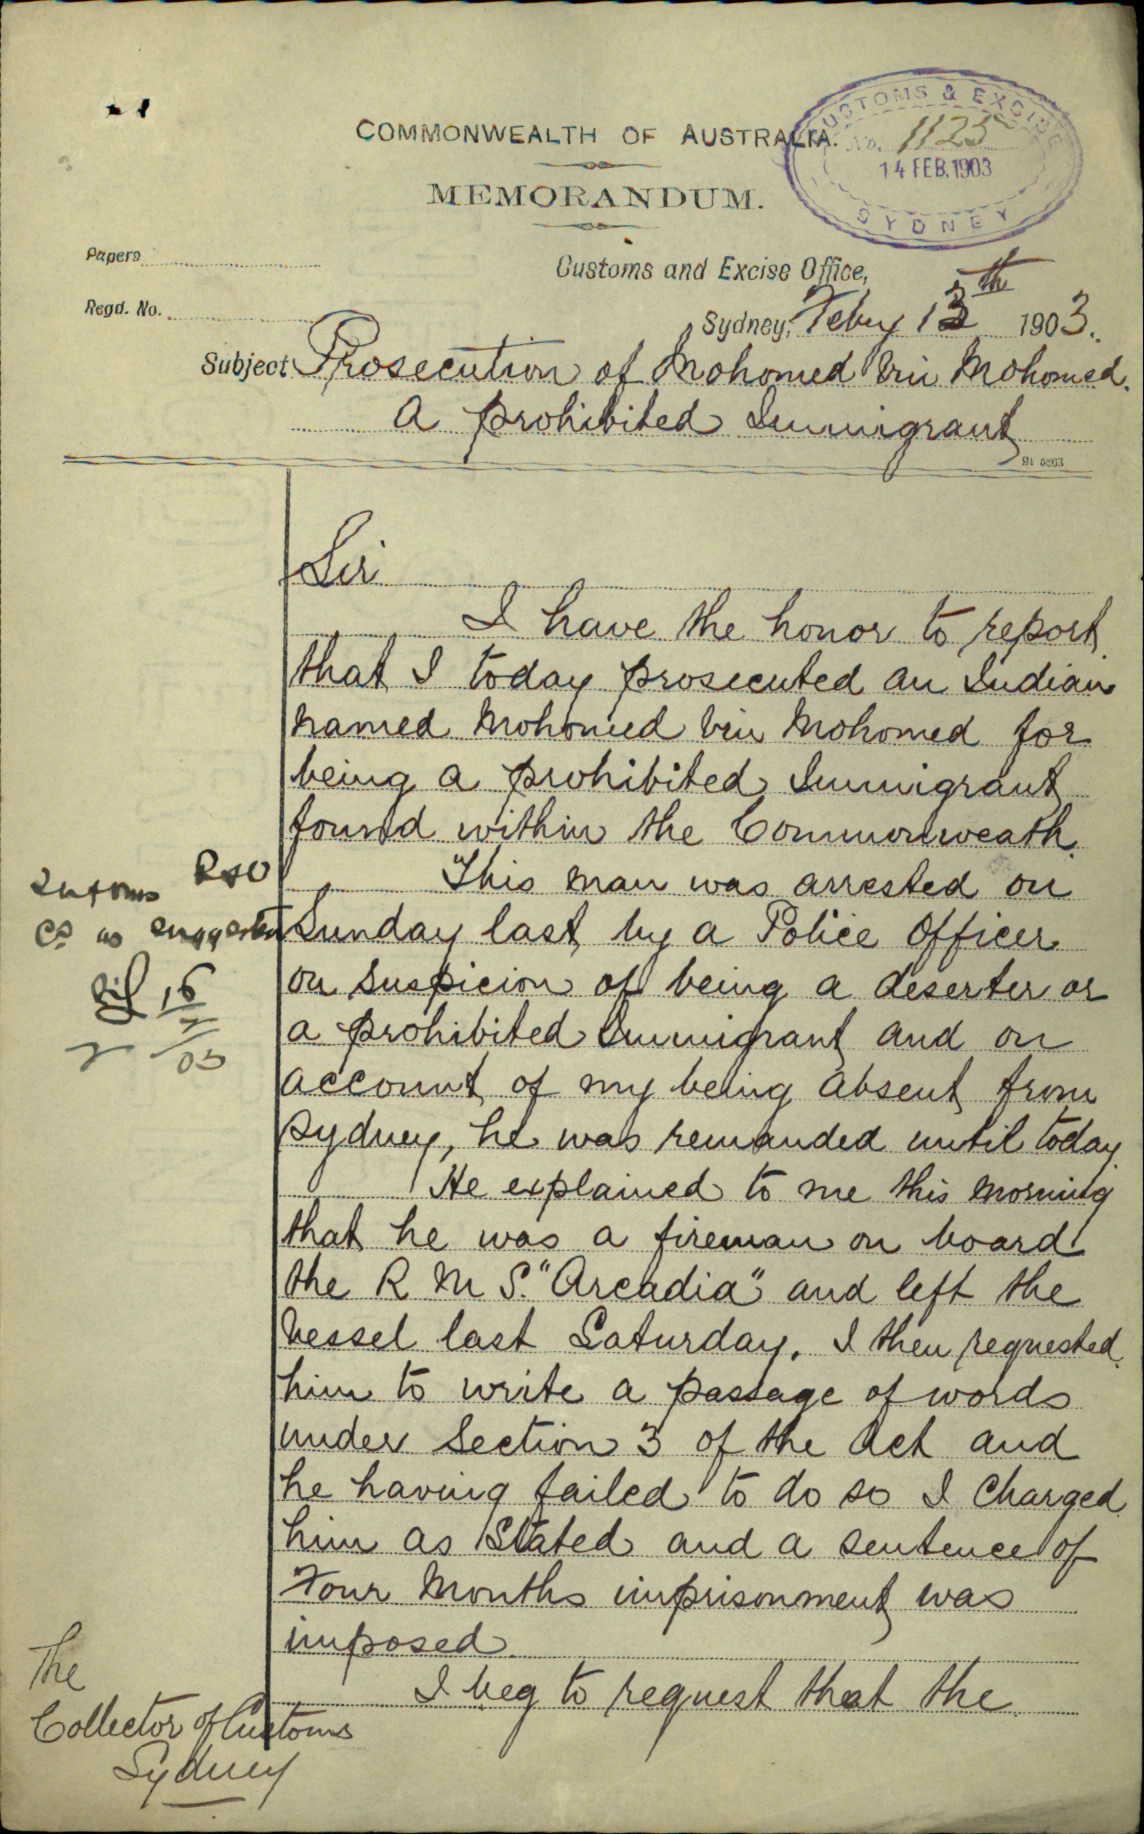 COMMONWEALTH OF AUSTRALIA.
CUSTOMS & EXCISE
No. 1125
14 FEB. 1903
SYDNEY
MEMORANDUM.
Papers
Customs and Excise Office,
Regd. No.
Sydney, Feby 13th 1903.
Subject Prosecution of Mohomed bin Mohomed.
a prohibited Immigrant
Sir
I have the honor to report
that I today prosecuted an Indian
named Mohomed bin Mohomed for
being a prohibited Immigrant
found within the Commonweath.
This man was arrested on
Sunday last by a Police Officer
on suspicion of being a deserter or
a prohibited Immigrant and on
account of my being absent from
Sydney, he was remanded until today.
He explained to me this morning
that he was a fireman on board
the R M S. "Arcadia" and left the
vessel last Saturday. I then requested
him to write a passage of words
under Section 3 of the Act and
he having failed to do so I charged
him as stated and a sentence of
Four Months imprisonment was
imposed.
I beg to request that the
Inform
as suggested
16
03
The
Collector of Customs
Sydney